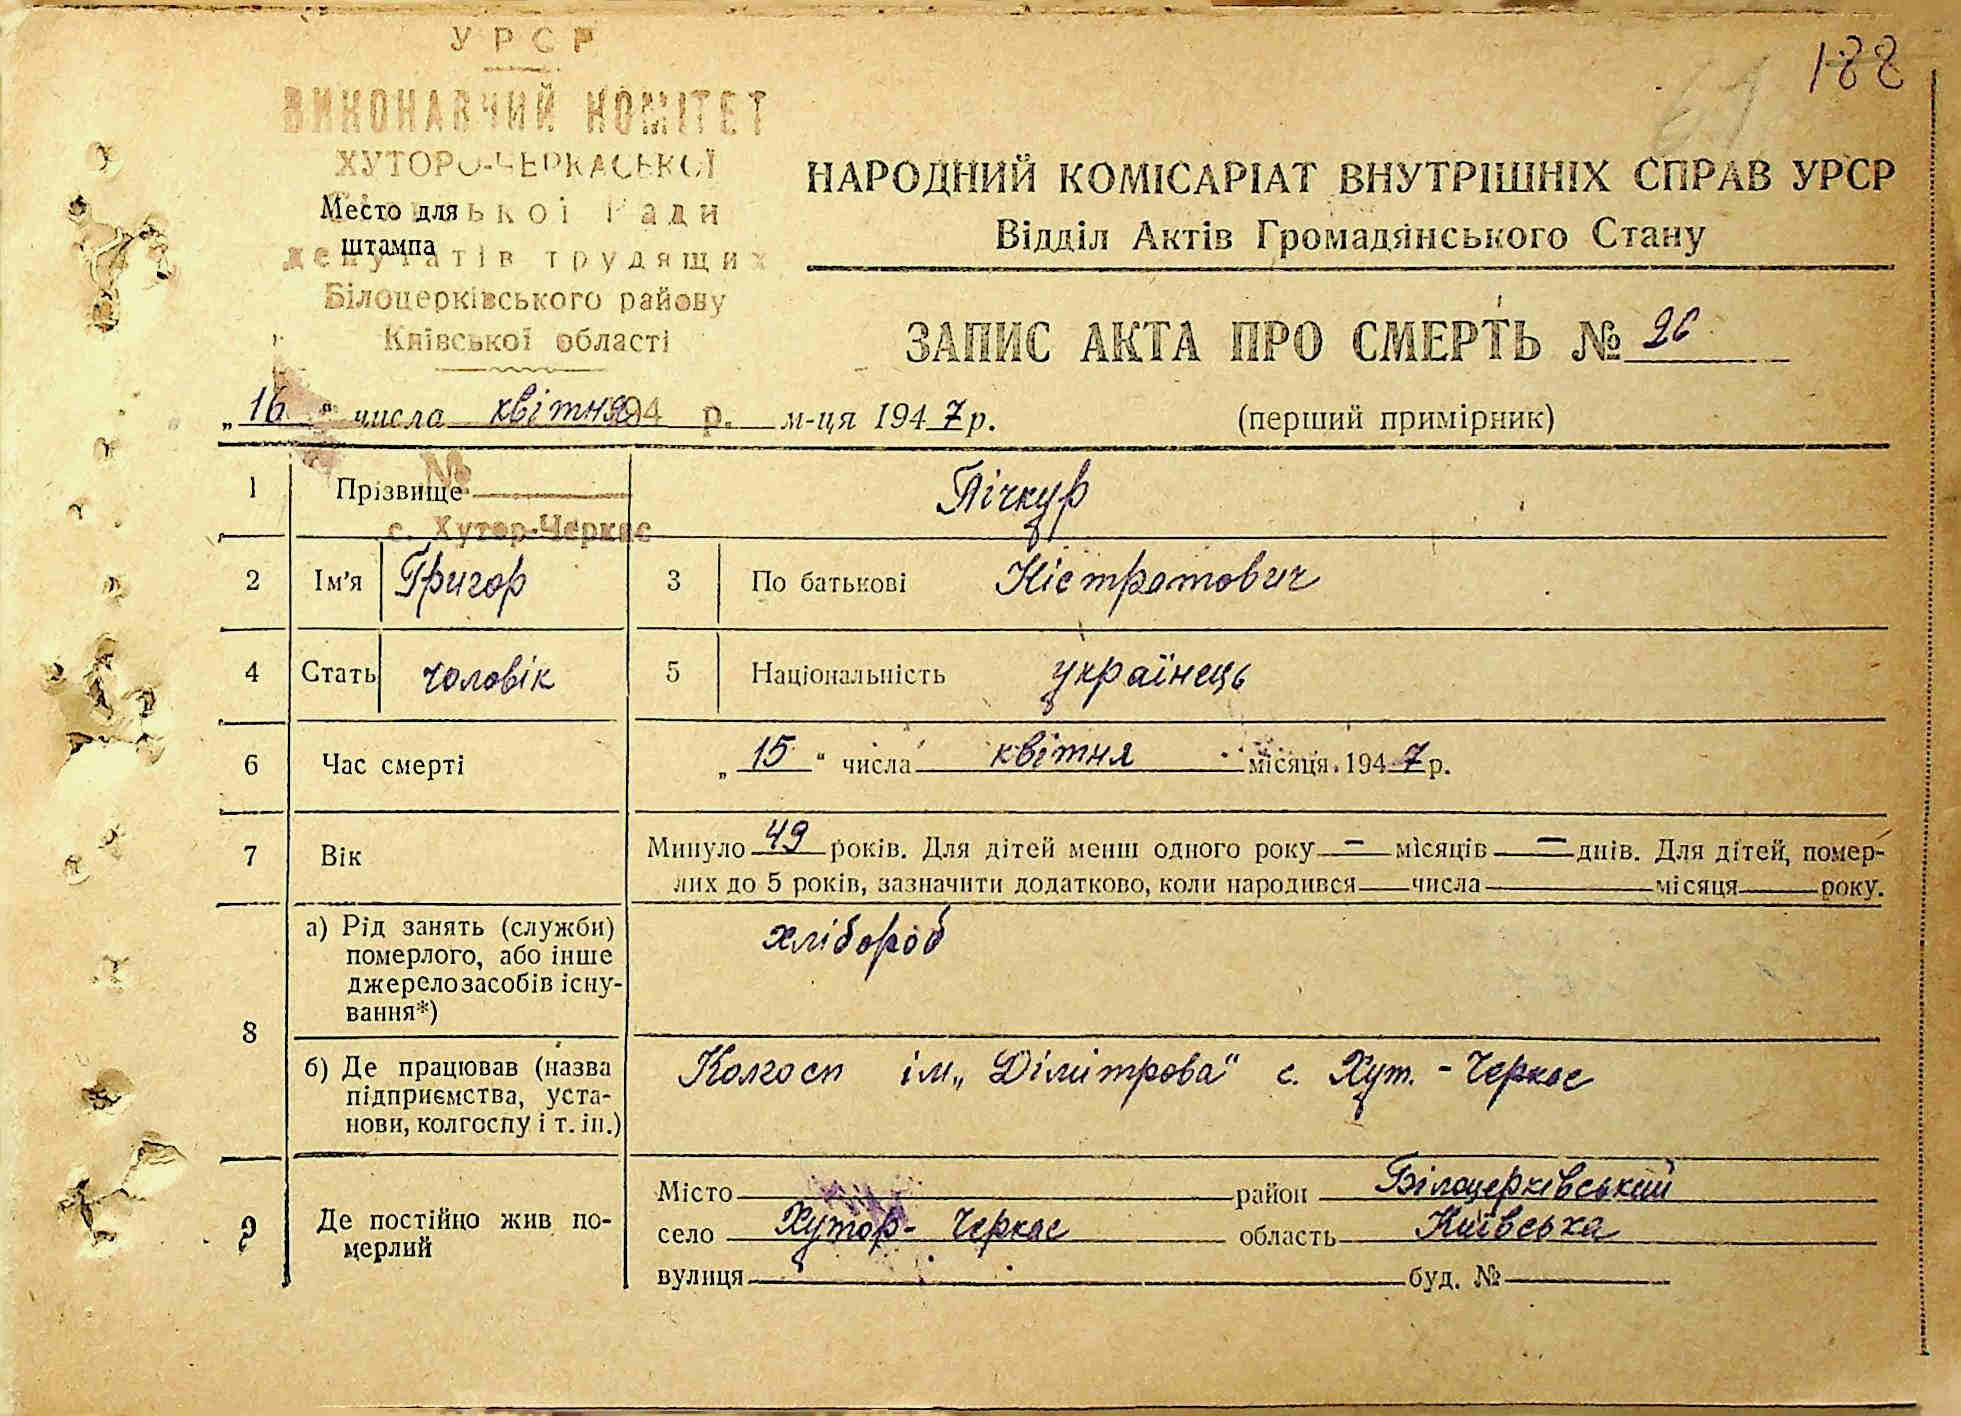 188
61
УРСР
ВИКОНАВЧИЙ КОМІТЕТ
ХУТОРО-ЧЕРКАСЬКОЇ
Сільської Ради
депутатів трудящих
Білоцерківського району
Київської області
Место для
штампа
194 р.
№
с. Хутор-Черкас
НАРОДНИЙ КОМІСАРІАТ ВНУТРІШНІХ СПРАВ УРСР
Відділ Актів Громадянського Стану
ЗАПИС АКТА ПРО СМЕРТЬ № 26
„16“ числа квітня м-ця 1947 р. (перший примірник)
1 Прізвище Пічкур
2 Ім'я Григор 3 По батькові Кістратович
4 Стать чоловік 5 Національність українець
6 Час смерті „15“ числа квітня місяця 1947 р.
7 Вік Минуло 49 років. Для дітей менш одного року – місяців – днів. Для дітей, помер-
лих до 5 років, зазначити додатково, коли народився числа місяця року.
8 а) Рід занять (служби)
померлого, або інше
джерело засобів існу-
вання*)
хлібороб
б) Де працював (назва
підприємства, уста-
нови, колгоспу і т. ін.)
Колгосп ім„ Дімітрова" с. Хут. - Черкас
9 Де постійно жив по-
мерлий
Місто район Білоцерківський
село Хутор- Черкас область Київська
вулиця буд. №